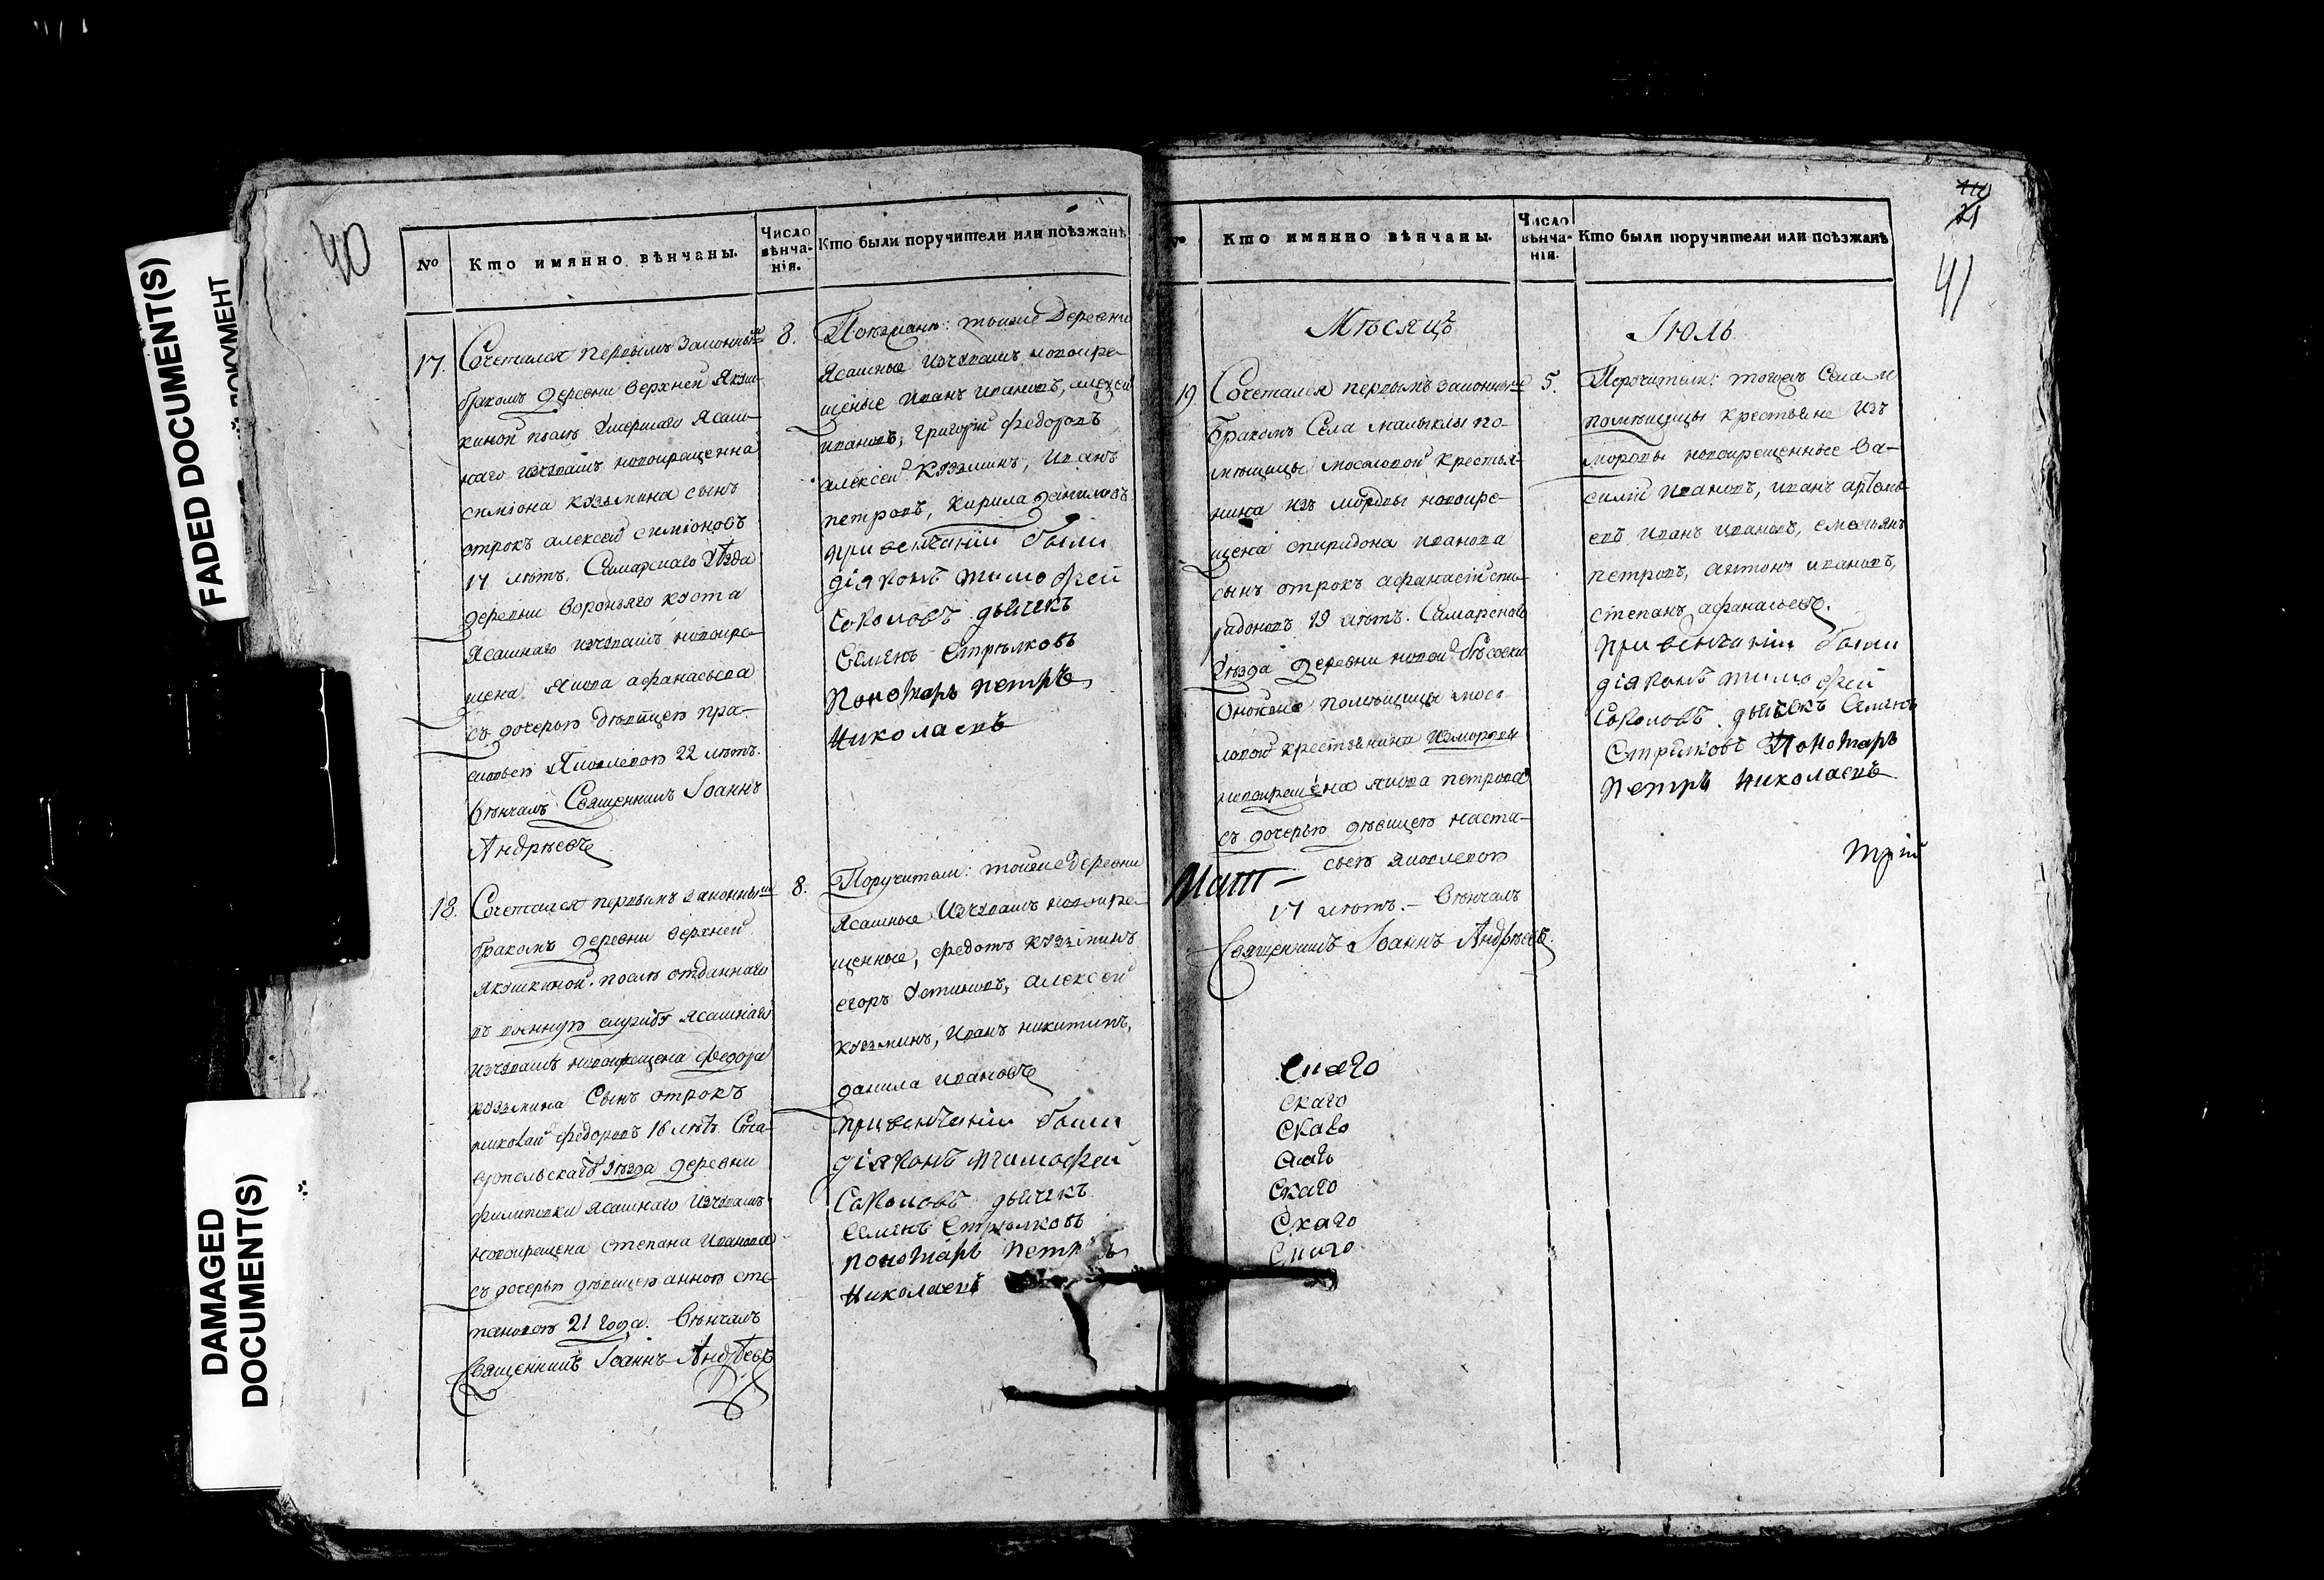 FADED DOCUMENT(S)
ДОКУМЕНТ
DAMAGED
DOCUMENT(S)
40
№
Кто имянно вѣнчаны.
Число
вѣнча-
нія.
Кто были поручители или поѣзжанѣ
17.
Сочетался первымъ законнымъ
бракомъ деревни верхней Якуш-
киной послѣ умершаго ясаш-
наго изчувашъ новокрещенна
симіона кузьмина сынъ
отрокъ алексей симіоновъ
17 лѣтъ. Самарскаго уѣзда
деревни Вороньяго куста
ясашнаго изчувашъ новокре-
щена Якова афанасьева
съ дочерью дѣвицею пра-
сковьею Яковлевою 22 лѣтъ.
Вѣнчалъ Священникъ Іоаннъ
Андрѣевъ
8.
Поѣзжанѣ: тоиже деревни
Ясашные изчувашъ новокре-
щеные Иванъ ивановъ, алексей
ивановъ, григорій федоровъ
алексей Кузминъ, Иванъ
петровъ, Кирила даниловъ
при венчаніи были
діяконъ тимофей
Соколовъ дьячекъ
Семенъ Стрѣлковъ
Пономарь петръ
Николаевъ
18.
Сочетался первымъ законнымъ
бракомъ деревни верхней
якушкиной послѣ отданнаго
въ военную службу ясашнаго
изчувашъ новокрещена федора
кузьмина Сынъ отрокъ
николай федоровъ 16 лѣтъ Ста-
вропольскаго уѣзда деревни
филиповки ясашнаго изчувашъ
новокрещена степана Иванова
съ дочерью дѣвицею анною сте-
пановою 21 года. Вѣнчалъ
Священникъ Іоаннъ Андрѣевъ
8.
Поручители: тойже деревни
Ясашные Изчувашъ новокре-
щенные, федотъ кузьминъ
егоръ устиновъ, алексей
кузминъ, Иванъ никитинъ,
данила ивановъ
при венчаніи были
діяконъ тимофей
Соколовъ дьячекъ
Семенъ Стрѣлковъ
пономарь Петръ
Николаевъ
21
41
Кто имянно вѣнчаны.
Число
вѣнча-
нія.
Кто были поручители или поѣзжанѣ
Мѣсяцъ
Іюль
19
Сочетался первымъ законнымъ
бракомъ Села малыклы по-
мѣщицы мосоловой крестья-
нина изъ мордвы новокре-
щена спиридона иванова
сынъ отрокъ афанасій спи-
ридоновъ 19 лѣтъ. Самарскаго
уѣзда деревни новой
помѣщицы мосо-
ловой крестьянина Изморды
новокрещена якова петрова
съ дочерью дѣвицею наста-
сьею яковлевою
17 лѣтъ. – Вѣнчалъ
Священникъ Іоаннъ Андрѣевъ.
5.
Поручители: тогожъ Села и
помѣщицы крестьяне изъ
мордвы новокрещенные Ва-
силій Ивановъ, иванъ артемь-
евъ иванъ ивановъ, емельянъ
петровъ, антонъ ивановъ,
степанъ афанасьевъ.
при венчаніи были
діяконъ тимофей
Соколовъ дьячекъ Семенъ
Стрѣлковъ Пономарь
Петръ Николаевъ
трій
Скаго
скаго
Скаго
Скаго
Скаго
Скаго